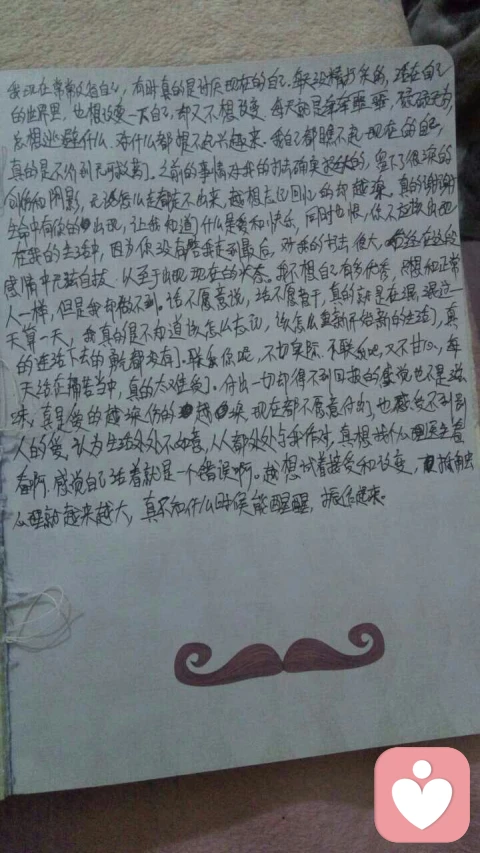 我现在常常问自己，有时真的是讨厌现在的自己。每天没精打采的，活在自己
的世界里，也想改变一下自己，却又不想改变，每天就是浑浑噩噩，碌碌无为，
总想逃避什么，对什么都提不起兴趣来。我自己都瞧不起现在的自己，
真的是不得到可救药。之前的事情对我的打击确实挺大的，留下了很深的
创伤和阴影，无论怎么走都走不出来，越想忘记回忆的却越深。真的谢谢
生命中有你的出现，让我知道什么是爱和快乐，同时也恨，你不应该出现
在我的生活中，因为你没有陪我走到最后，对我的打击很大，曾经在这段
感情中无法自拔，以至于出现现在的状态。我不想自己有多优秀，只想和正常
人一样，但是我却做不到。话不愿意说，活不愿意干，真的就是在混，混过一
天算一天，我真的是不知道该怎么忘记，该怎么重新开始新的生活了，真
的连活下去的勇气都没有了。联系你呢，不切实际，不联系吧，又不甘心，每
天活在痛苦当中，真的太难受了。付出一切却得不到回报的感觉也不是滋
味，真是爱的越深伤的越深，现在都不愿意付出了，也感受不到别
人的爱，认为生活处处不如意，人人都处处与我作对，真想找个心理医生看
看啊，感觉自己活着就是一个错误啊。越想试着接受和改变，抵触
心理就越来越大，真不知什么时候能醒醒，振作起来。